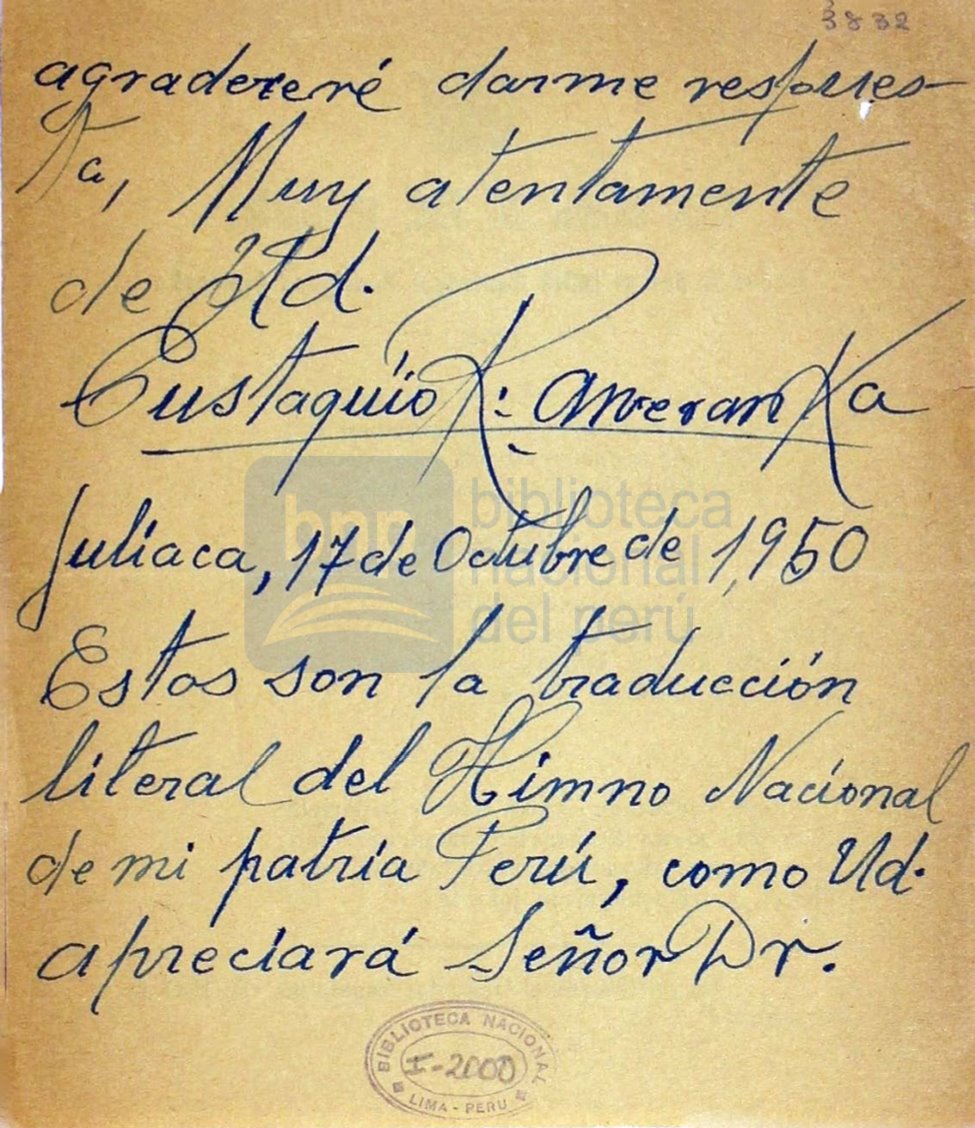 3832
agradeceré darme respues-
ta, Muy atentamente
de Ud.
Eustaquio R. Aweranka
Juliaca, 17 de Octubre de 1,950
Estos son la traducción
literal del Himno Nacional
de mi patria Perú, como Ud.
apreciará Señor Dr.
bnp biblioteca
nacional
del perú
BIBLIOTECA NACIONAL
I-2000
LIMA - PERU